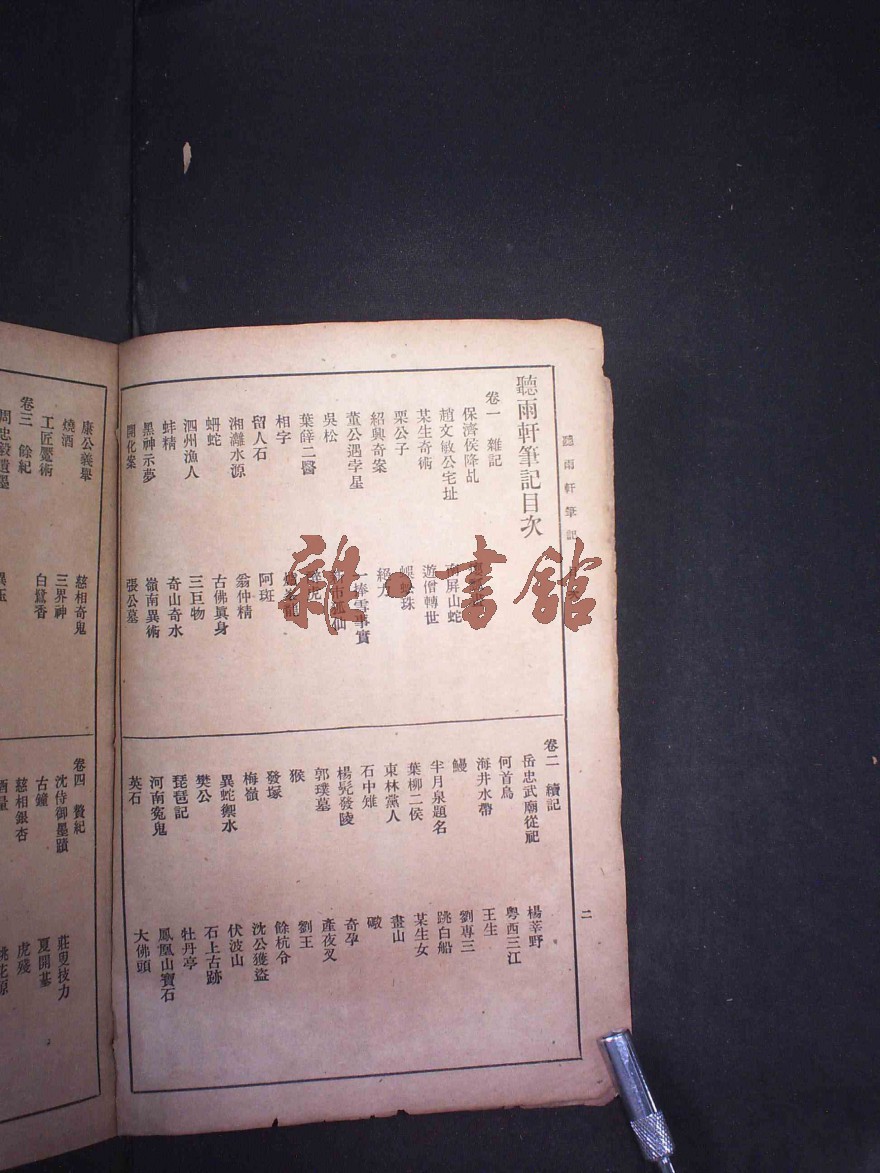 聽雨軒筆記
聽雨軒筆記目次
卷一 雜記
保濟侯降乩
趙文敏公宅址
某生奇術
栗公子
紹興奇案
董公遇孛星
吳松
葉薛二醫
相字
留人石
湘灕水源
蚺蛇
泗州漁人
蚌精
黑神示夢
開化案
南屏山蛇
遊僧轉世
蜈蚣珠
絕力
捧雪事實
阿斑
翁仲精
古佛眞身
三巨物
奇山奇水
嶺南異術
張公墓
卷二 續記
岳忠武廟從祀
何首烏
海井水帶
鰻
半月泉題名
葉柳二侯
東林黨人
石中雉
楊髠發陵
郭璞墓
猴
發塚
梅嶺
異蛇禦水
樊公
琵琶記
河南寃鬼
英石
楊莘野
粵西三江
王生
劉專三
跳白船
某生女
畫山
礮
奇孕
產夜叉
劉王
餘杭令
沈公獲盜
伏波山
石上古跡
牡丹亭
鳳凰山寶石
大佛頭
二
康公義舉
燒酒
工匠魘術
卷三 餘紀
周忠毅遺墨
慈相奇鬼
三界神
白鷺香
卷四 贅紀
沈侍御墨蹟
古鐘
慈相銀杏
酒量
莊叟技力
夏開基
虎殘
桃花源
雜·書館